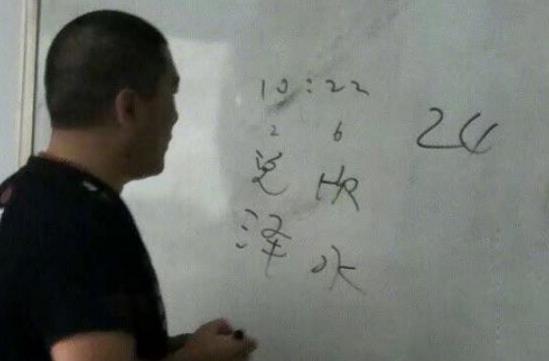 10:22
2 6 24
兑 坎
泽 水